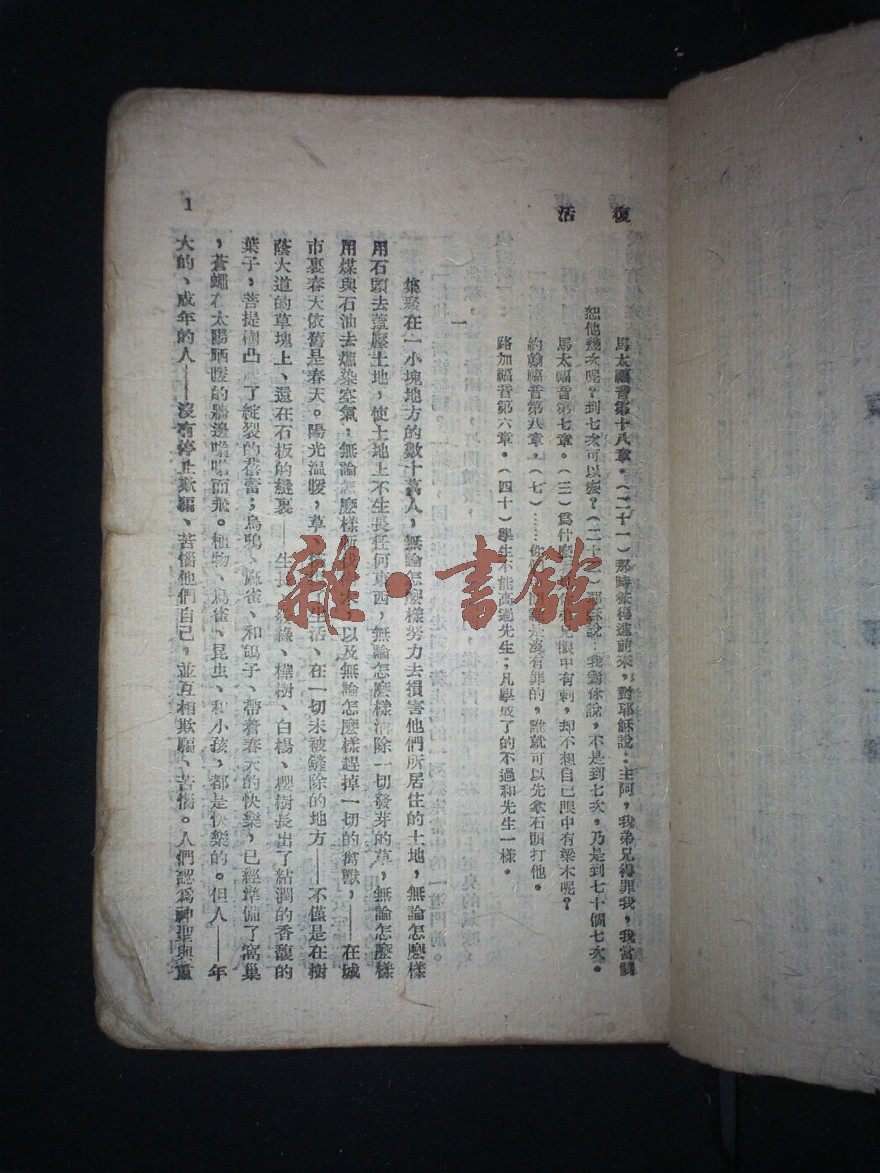 復活
馬太福音第十八章。(二十一)那時彼得進前來，對耶穌說：主阿，我弟兄得罪我，我當饒
恕他幾次呢？到七次可以麼？(二十二)耶穌說：我對你說，不是到七次，乃是到七十個七次。
馬太福音第七章。(三)爲什麼 弟兄眼中有刺，却不想自己眼中有梁木呢？
約翰福音第八章。(七)……你 是沒有罪的，誰就可以先拿石頭打他。
路加福音第六章。(四十)學生不能高過先生；凡學成了的不過和先生一樣。
一
集聚在一小塊地方的數十萬人，無論怎麼樣努力去損害他們所居住的土地，無論怎麼樣
用石頭去蓋壓土地，使土地上不生長任何東西，無論怎麼樣清除一切發芽的草，無論怎麼樣
用煤與石油去燻染空氣，無論怎麼樣 以及無論怎麼樣趕掉一切的禽獸，——在城
市裏春天依舊是春天。陽光溫暖，草、 生活、在一切未被鏟除的地方——不僅是在樹
蔭大道的草塊上、還在石板的縫裏——生長 綠、樺樹、白楊、櫻樹長出了粘潤的香馥的
葉子，菩提樹凸 了綻裂的蓓蕾；烏鴉、麻雀、和鴿子、帶着春天的快樂，已經準備了窩巢
，蒼蠅在太陽晒暖的牆邊嗡嗡而飛。植物、鳥雀、昆虫、和小孩，都是快樂的。但人——年
大的、成年的人——沒有停止欺騙、苦惱他們自己，並互相欺騙、苦惱。人們認爲神聖與重
1
雜·書館